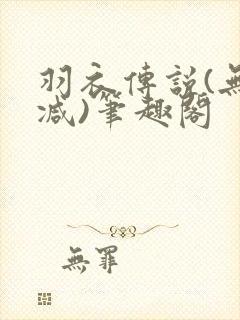 羽衣傳說(無
減)筆趣閣
無罪